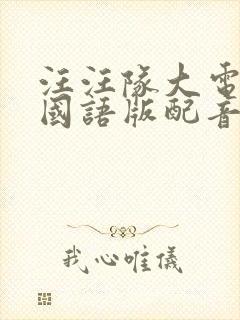 汪汪隊大電
國語版配音
我心唯儀